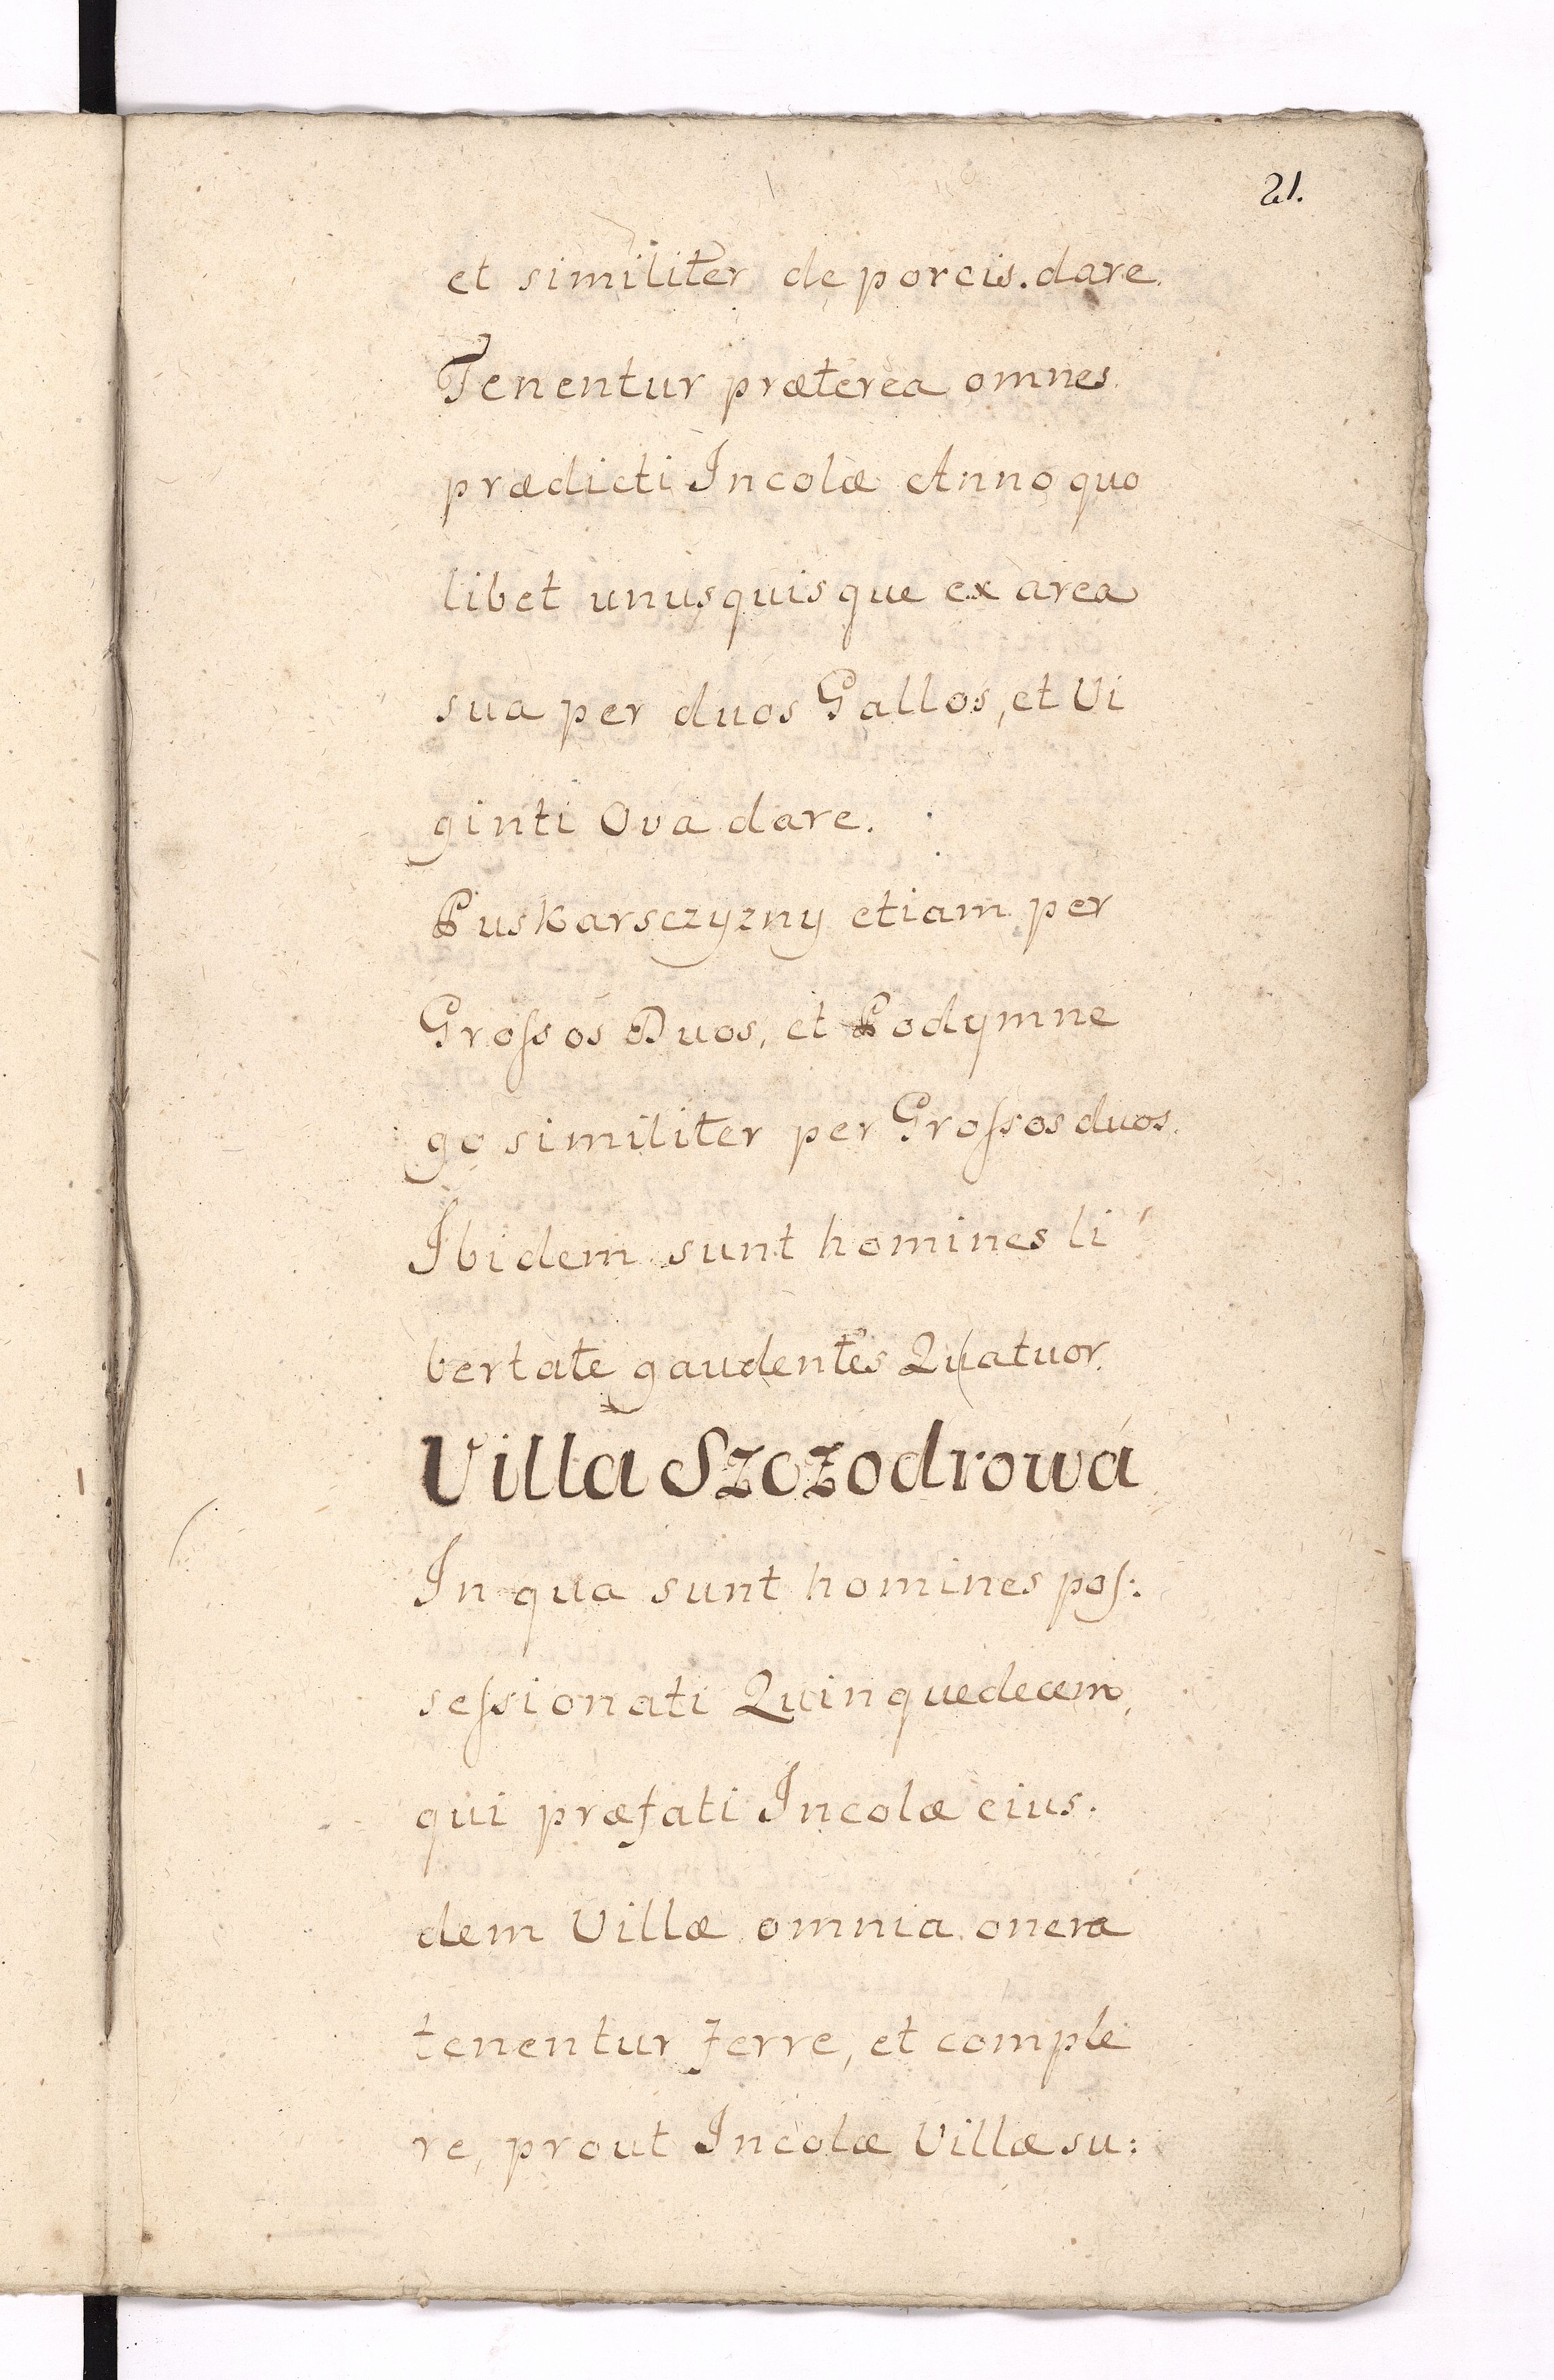 21.
et similiter de porcis. dare.
Tenentur præterea omnes.
prædicti Incolæ Anno quo
libet unusquisque ex area
sua per duos Gallos, et Vi
ginti Ova dare.
Puskarsczyzny etiam per
Groſsos Duos, et Podymne
go similiter per Groſsos duos.
Ibidem sunt homines li
bertate gaudentes Quatuor.
Villa Szczodrowa
In qua sunt homines poſ:
seſsionati Quinquedecem,
qui præfati Incolæ eius.
dem Villæ omnia onera
tenentur ferre, et comple
re, prout Incolæ Villæ su: